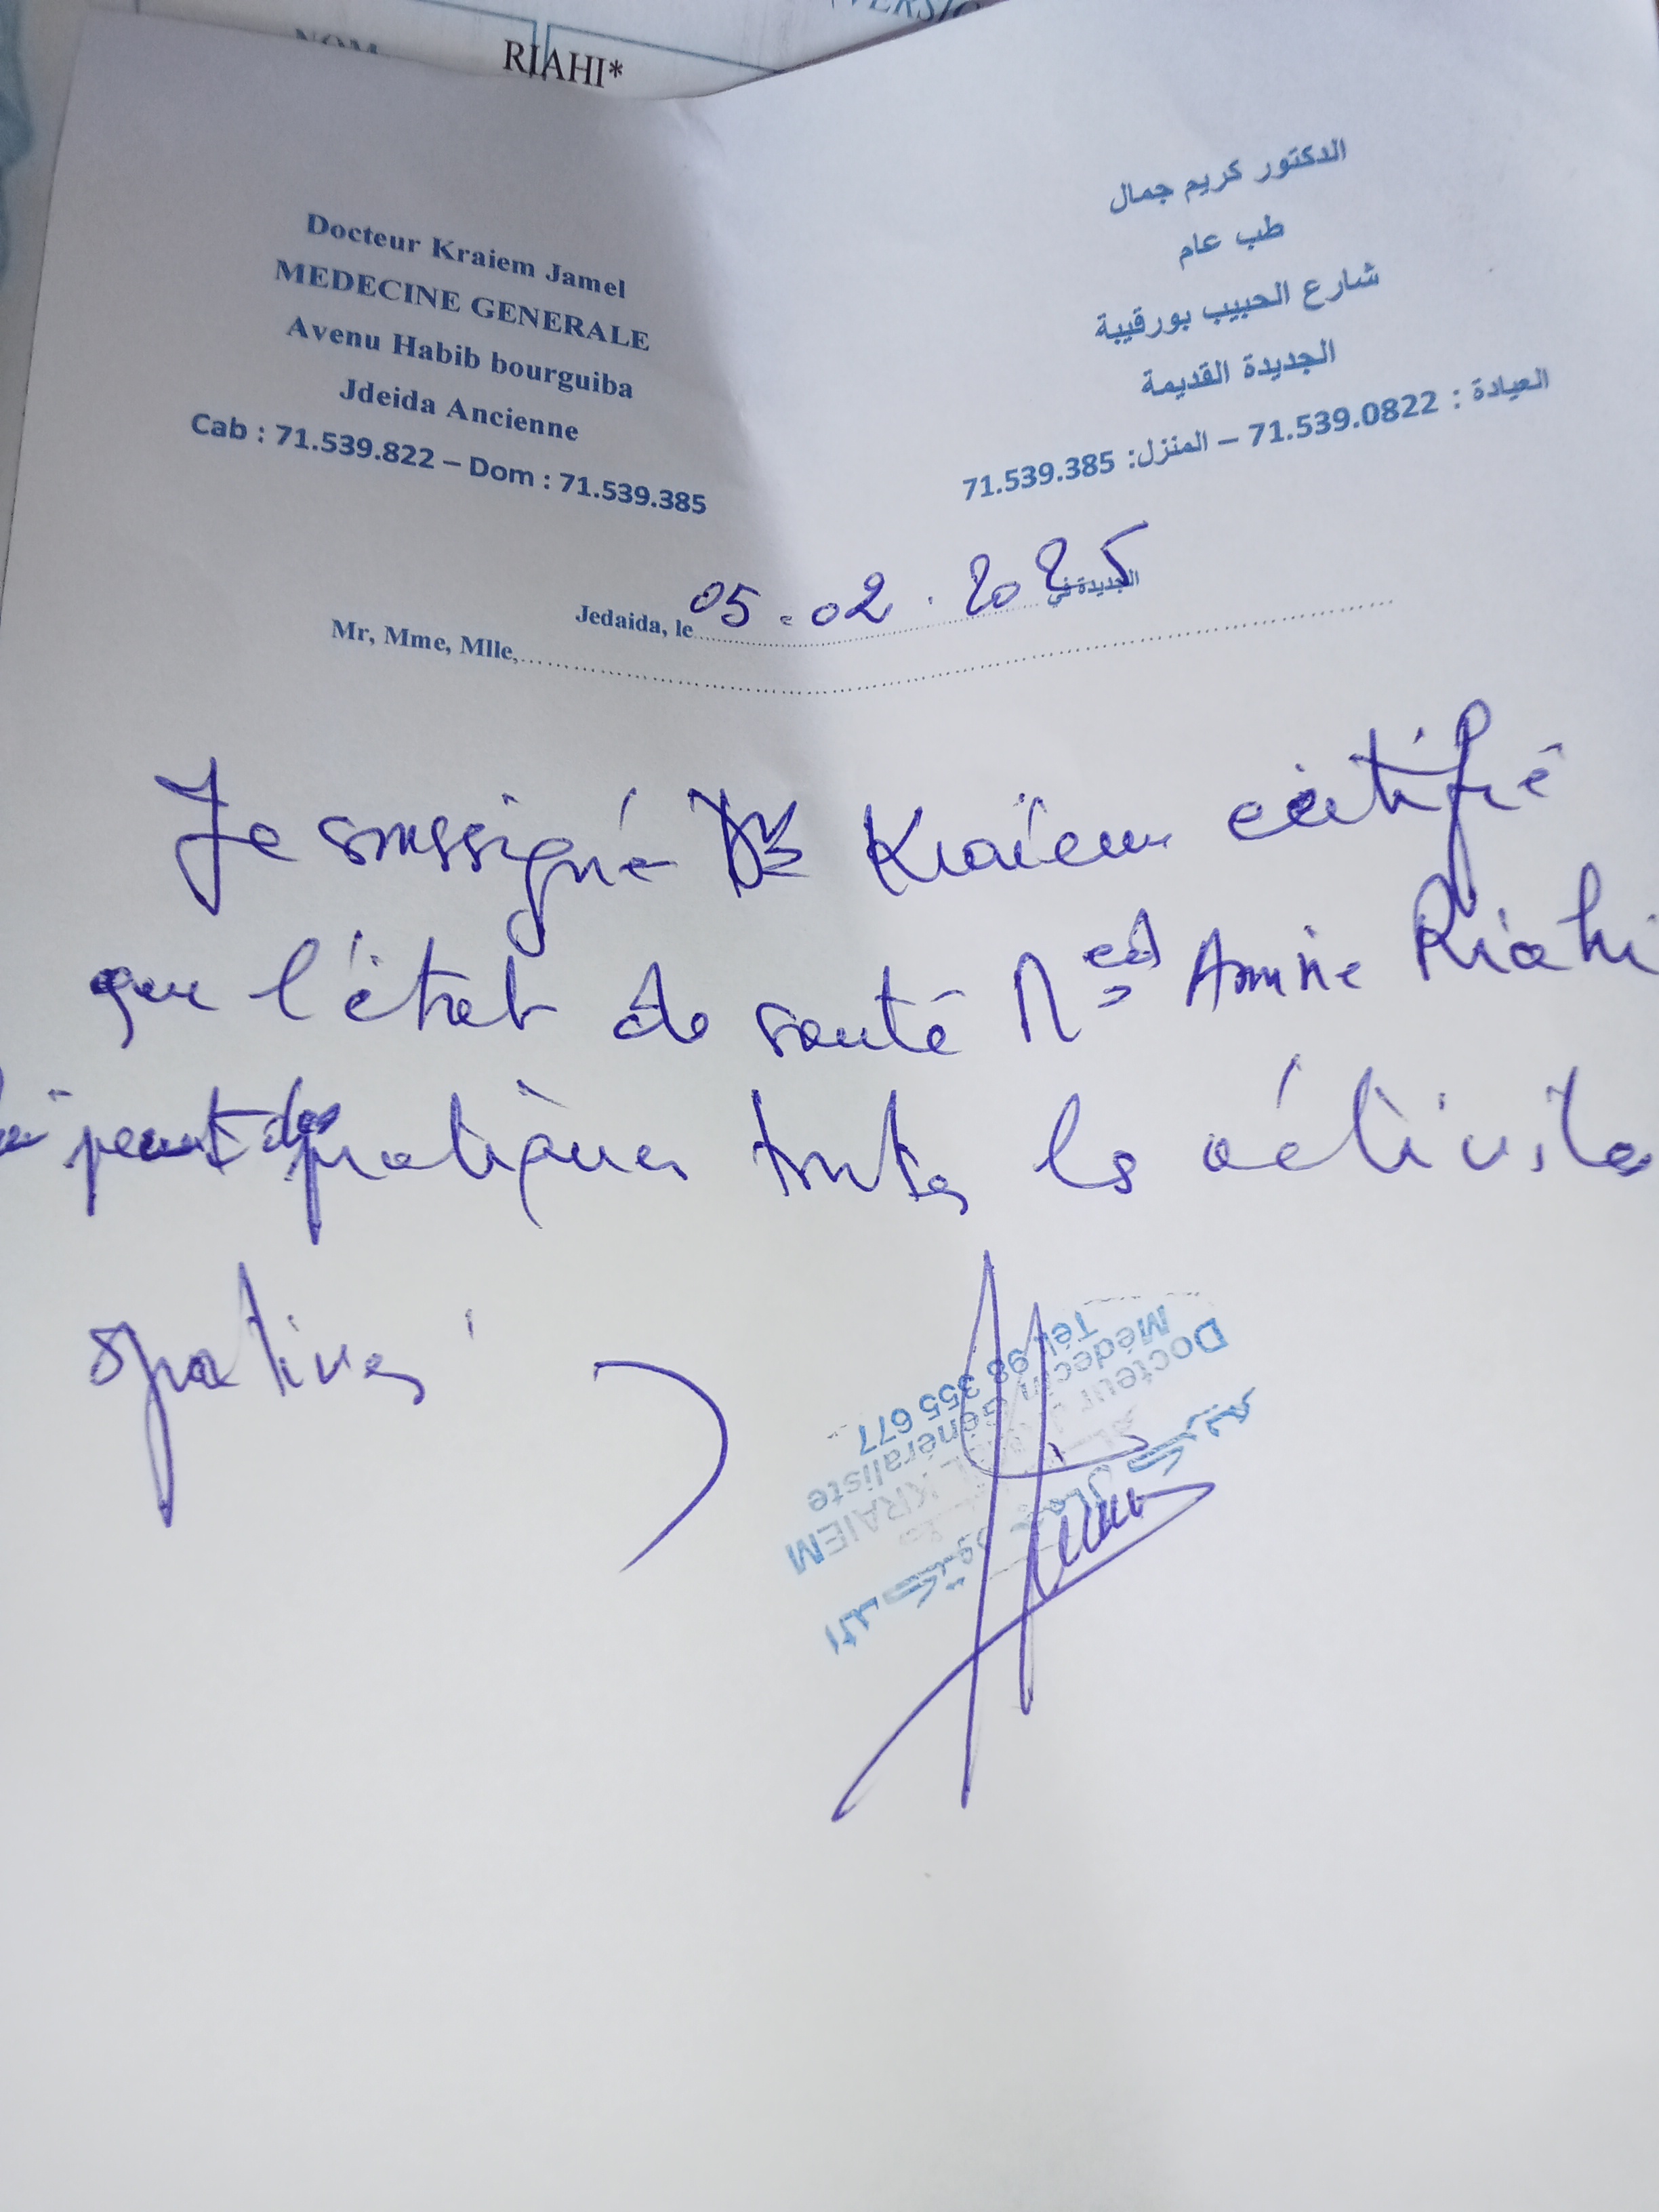 NOM
RIAHI*
Docteur Kraiem Jamel
MEDECINE GENERALE
Avenu Habib bourguiba
Jdeida Ancienne
Cab : 71.539.822 – Dom : 71.539.385
الدكتور كريم جمال
طب عام
شارع الحبيب بورقيبة
الجديدة القديمة
العيادة : 71.539.0822 – المنزل: 71.539.385
Jedaida, le 05.02.2025 الجديدة في
Mr, Mme, Mlle,
Je soussigné Dr Kraïem certifie
que l'état de santé Med Amine Riahi
lui peut pratiquer toutes les activités
sportives
الدكتور جمال كريم
Docteur KRAIEM
Médecin Généraliste
Tél 98 355 677